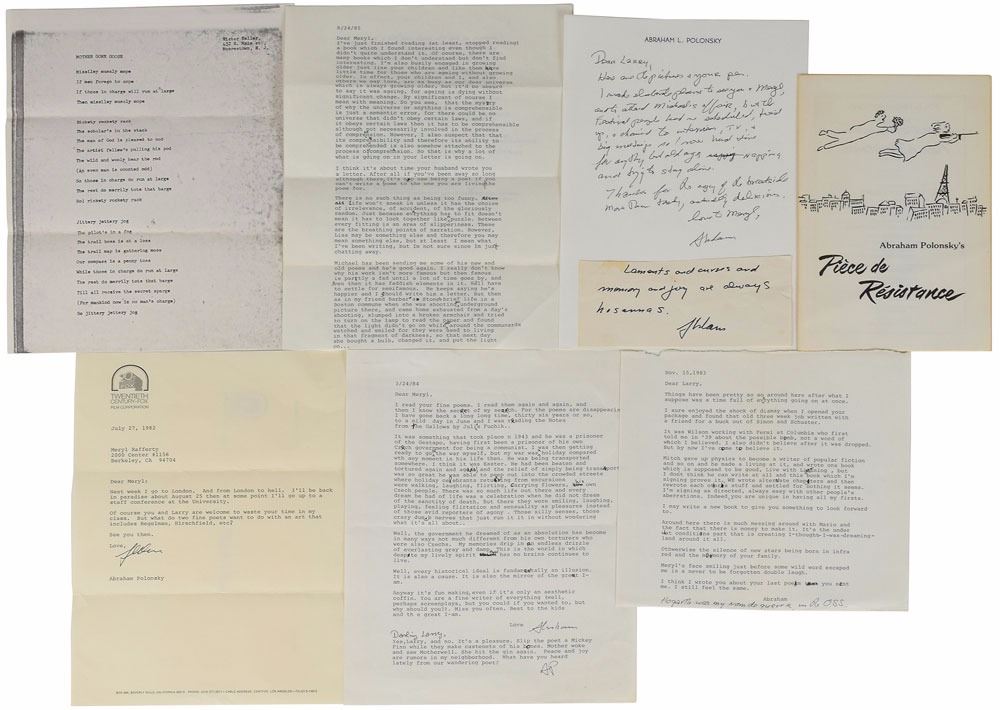 Victor Haller
MOTHER GONE GOOSE
Misstley munsly mope
If men forego to nope
If those in charge will run at large
Then misstley munsly mope
Rickety rockety rack
The scholar's in the stack
The man of God is pleased to nod
The artist fellow's pulling his pod
The wild and wooly bear the rod
(An even man is counted odd)
So those in charge do run at large
The rest do merrily tote that barge
Hol rickety rockety rack
Jittery jettery jog
The pilot's in a fog
The trail boss is at a loss
The trail map is gathering moss
Our compass is a penny toss
While those in charge do run at large
The rest do merrily tote that barge
Till all receive the secret sparge
(For mankind now is no man's charge)
So jittery jettery jog
8/24/85
Dear Meryl,
I've just finished reading (at least, stopped reading)
a book which I found interesting even though I
didn't quite understand it. Of course, there are
many books which I don't understand but don't find
interesting. I'm also busily engaged in growing
older just like your children and like them have
little time for those who are ageing without growing
older. In effect, your children and I, and also
others we may love, are as busy as our dear universe
which is always growing older, but it'd be absurd
to say it was ageing, for ageing is dying without
significant change. By significant of course I
mean with meaning. So you see, that the mystery
why the universe or anything is comprehensible
is just a semantic error, for there could be no
universe that didn't obey certain laws, and if
it obeys certain laws then it has to be comprehensible
although not necessarily involved in the process
of comprehension. However, I also suspect that that
its comprehensibility and therefore its ability to
be comprehended is also somehow attached to the
process of comprehension. So that is why a lot of
what is going on in your letter is going on.
I think it's about time your husband wrote you
a letter. After all if you've been away so long
although there, it's
can't write a poem to the one you are living the
poem for.
There is no such thing as being too funny. After
all life won't sneak in unless it has the choice
of irrelevance, of accident, of the gloriously
random. Just because everything has to fit doesn't
mean it has to look together like puzzle. Between
every fitting is an area of slipperiness. These
are the breathing points of narration. However,
Lisa may be something else and therefore you may
mean something else, but at least I mean what
I've been writing, but Im not sure since Im just
chatting away.
Michael has been sending me some of his new and
old poems and he's good again. I really don't know
why his work isn't more famous but then famous
is partly a fad until a lot of time goes by, and
even then it has faddish elements in it. He'll have
to settle for semifamous. He keeps saying he's
happier and I should write him a letter. But then
as in my friend Barber's Stonehrief life in a
Boston commune when she was shooting underground
picture there, and came home exhausted from a day's
shooting, slumped into a broken armchair and tried
to turn on the lamp to read the paper and found
that the light didn't go on while around the communards
watched and smiled for they were used to living
in that fragment of darkness, so that next day
she bought a bulb, changed it, and put the light
on...
ABRAHAM L. POLONSKY
Dear Larry,
Here are the pictures & your pen.
I made elaborate plans to see you & Meryl,
early attend Michael's affair, but the
Festival people had me scheduled, tied
up, & chained to interviews, TV, &
big meetings so I now have time
for anything but old age napping
and trying to stay alive.
Thanks for the copy of the
love to Meryl,
Abraham
Laments and curses and
memory and joy are always
hosannas.
Abraham
Abraham Polonsky's
Pièce de
Résistance
TWENTIETH
CENTURY-FOX
FILM CORPORATION
July 27, 1982
Meryl Rafferty
2000 Center #1156
Berkeley, CA 94704
Dear Meryl:
Next week I go to London. And from London to hell. I'll be back
in paradise about August 25 then at some point I'll go up to a
staff conference at the University.
Of course you and Larry are welcome to waste your time in my
class. But what do two fine poets want to do with an art that
includes Regelman, Hirschfield, etc?
See you then.
Love,
Abraham Polonsky
3/24/84
Dear Meryl,
I read your fine poems. I read them again and again, and
then I know the secret of my search. For the poems are disappearing
I have gone back a long long time, thirty six years or so,
to a mild day in June and I was reading the Notes
from the Gallows by Julius Fuchik..
It was something that took place n 1943 and he was a prisoner
of the Gestapo, having first been a prisoner of his own
Czech governmet for being a communist. I was then getting
ready to go the war myself, but my war was holiday compared
wth any moment in his life then. He was being transported
somewhere. I think it was Easter. He had been beaten and
tortured again and again and the relief of simply being transport
was so great he was able to peep out into the crowded streets
where holiday celebrants returning from excursions
were walking, laughing, flirting, carrying flowers, his own
Czech people. There was so much life out there and every
dream he had of life was a celebration when he did not dream
of the sanctity of death. But they were smiling, laughing,
playing, feeling flirtation and sensuality as pleasures instead
of those evil reporters of agony. Those silly senses, those
crazy dumb nerves that just run it in without wondering
what it's all about..
Well, the government he dreamed of as an absolution has become
in many ways not much different from his own torturers who
were also Czechs. My memories drip in an endless drizzle
of everlasting gray and damp. This is the world in which
despite my lively spirit has no brains continues to
live.
Well, every historical ideal is fundamentally an illusion.
It is also a cause. It is also the mirror of the great I-
am.
Anyway it's fun making,even if it's only an aesthetic
coffin. You are a fine writer of everything (well,
perhaps screenplays, but you could if you wanted to, but
why should you?). Miss you often. Best to the kids
and th e great I-am.
Love Abraham
Darling Larry,
Yes,Larry, and no. It's a pleasure. Slip the poet a Mickey
Finn while they make castenets of his bones. Mother woke
and saw Motherwell. She hit the gin again. Peace and joy
are rumors in my neighborhood. What have you heard
lately from our wandering poet?
AP
Nov. 15,1983
Dear Larry,
Things have been pretty so so around here after what I
suppose was a time full of everything going on at once.
I sure enjoyed the shock of dismay when I opened your
package and found that old three week job written with
a friend for a buck out of Simon and Schuster.
It was Wilson working with Fermi at Columbia who first
told me in '39 about the possible bomb, not a word of
which I believed. I also didn't believe after it was dropped.
But by now I've come to believe it.
Mitch gave up physics to become a writer of popular fiction
and so on and he made a living at it, and wrote one book
which is supposed to be good, Live with Lightning , but
I don't think he can write at all and this book which I'm
signing proves it. WE wrote alternate chapters and then
rewrote each others stuff and settled for nothing it means.
I'm signing as directed, always easy with other people's
aberrations. Indeed you are unique in having all my firsts.
I may write a new book to give you something to look forward
to.
Around here there is much messing around with Mario and
the fact that there is no money to make it. It's the under
the conditions part that is creating I-thought-I-was-dreaming-
land around it all.
Otherwise the silence of new stars being born in infra
red and the memory of your family.
Meryl's face smiling just before some wild word escaped
me is a never to be forgotten double laugh.
I think I wrote you about your last poem when you sent
me. I still feel the same.
Abraham
Hogarth was my nom de guerre in the OSS.